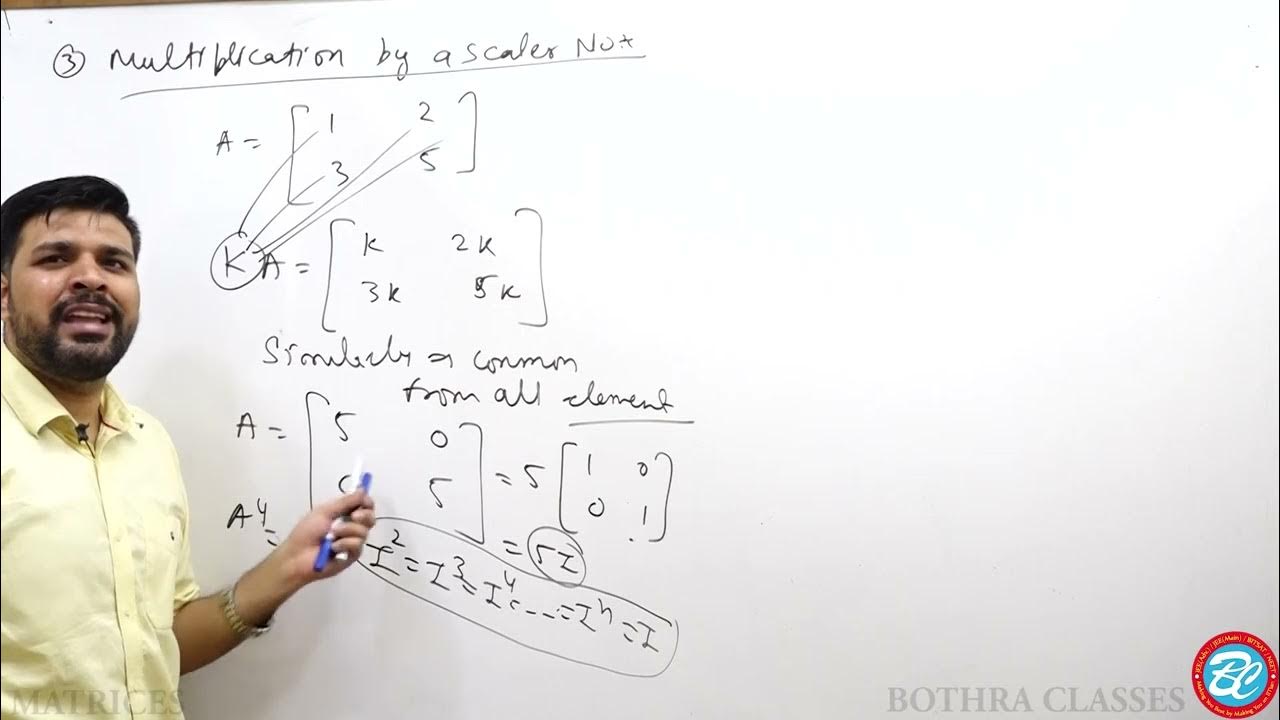 ③ Multiplication by a scaler No.
A = [ 1 2
3 5 ]
K A = [ K 2K
3K 5K ]
Similarly ⇒ common
from all element
A = [ 5 0
5 ] = 5 [ 1 0
0 1 ]
A⁴ = = 5I
I² = I³ = I⁴ = --- = Iⁿ = I
MATRICES
BOTHRA CLASSES
BC